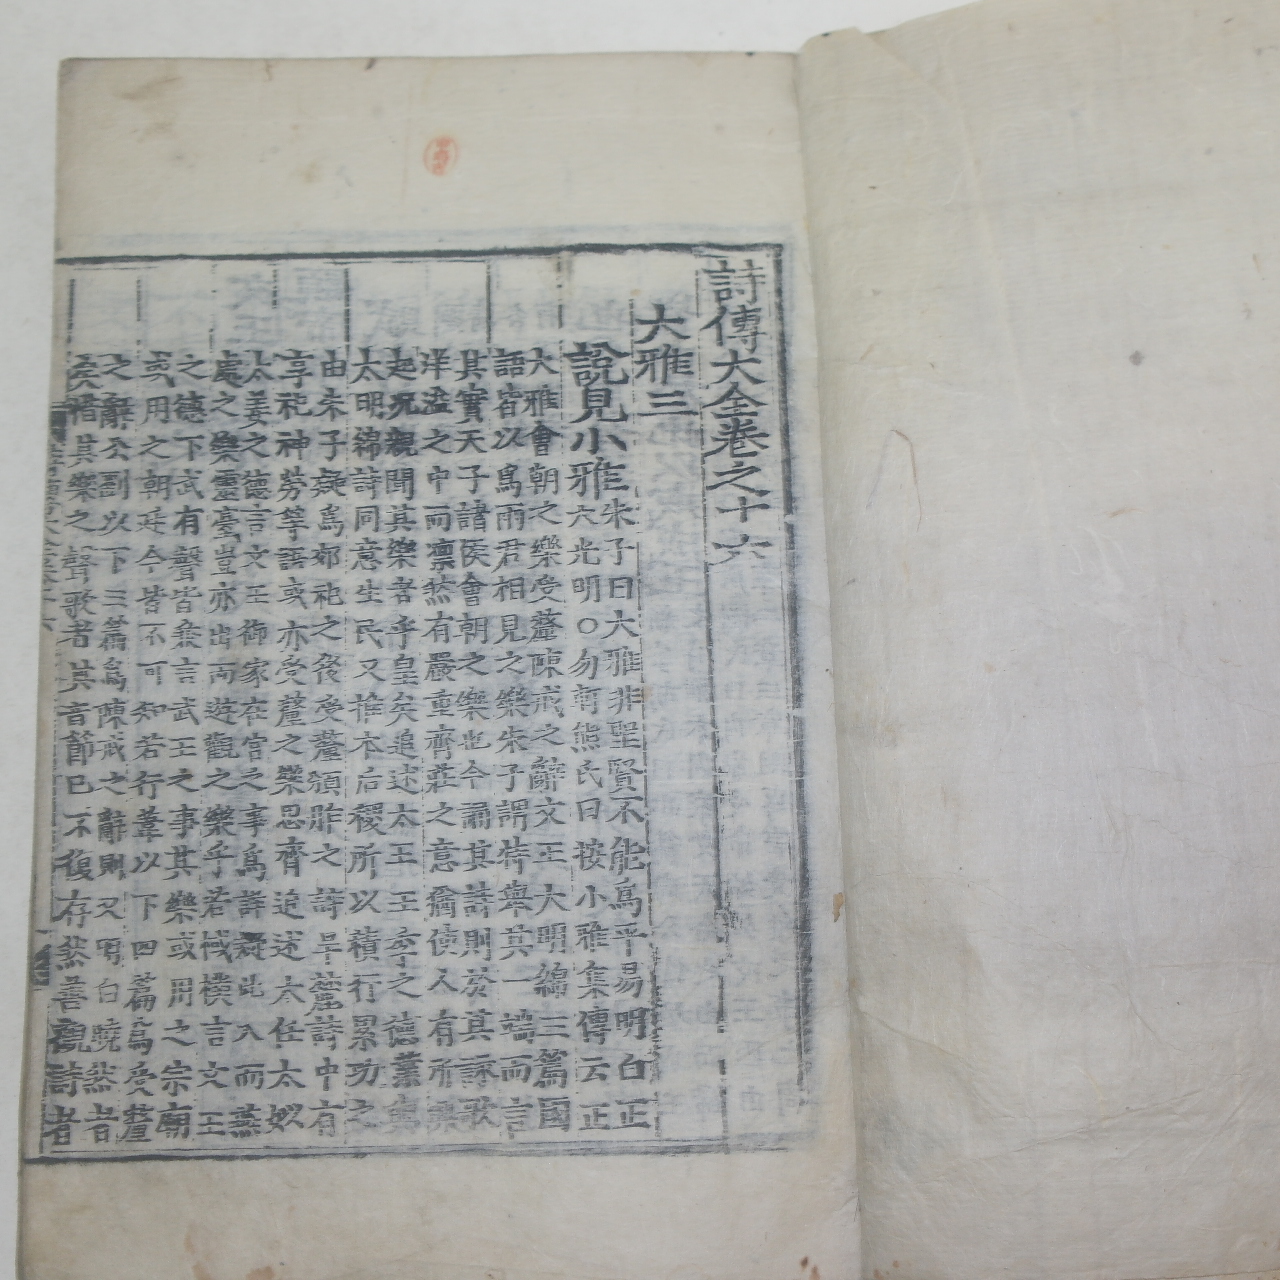 詩傳大全卷之十六
大雅三
說見小雅
朱子曰大雅非聖賢不能爲平易明白正
大光明○勿軒熊氏曰按小雅集傳云正
大雅會朝之樂受釐陳戒之辭文王大明綿三篇國
語皆以爲兩君相見之樂朱子謂特擧其一端而言
其實天子諸侯會朝之樂也今誦其詩則於其詠歌
洋溢之中而凛然有嚴重齊莊之意爾使人有所興
起况親聞其樂者乎皇矣追述太王王季之德業與
太明綿詩同意生民又推本后稷所以積行累功之
由朱子疑爲郊祀之後受釐頒胙之詩旱麓詩中有
享祀神勞等語或亦受釐之樂思齊追述太任太姒
太姜之德言文王御家在宮之事爲詳疑此入而燕
處之樂靈臺豈亦出而遊觀之樂乎若棫樸言文王
之德下武有聲皆兼言武王之事其樂或用之宗廟
或用之朝廷今皆不可知若行葦以下四篇爲受釐
之辭公劉以下三篇爲陳戒之辭則又明白曉然者
矣惜其樂之聲歌者其音節已不復存然善觀詩者